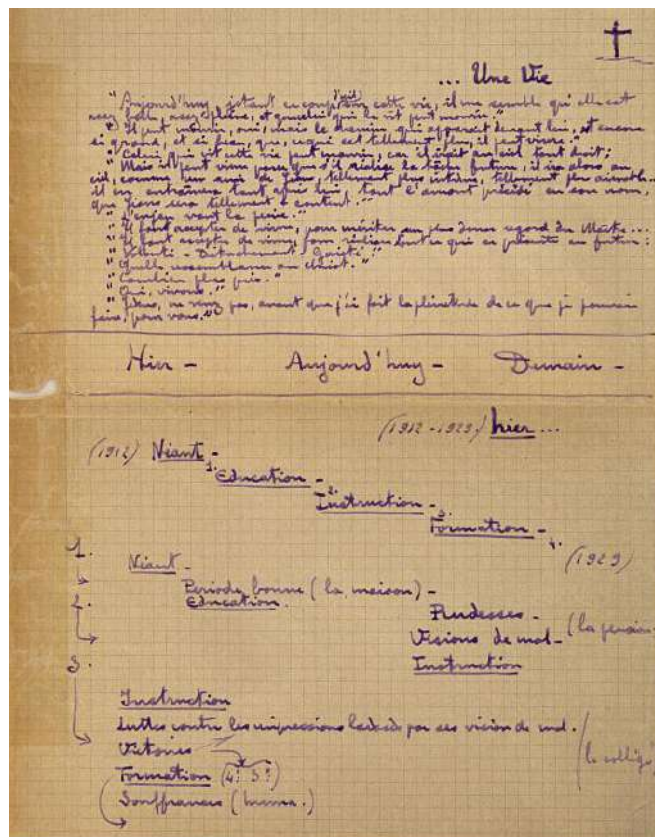 ... Une Vie
"Aujourd'huy, jetant un coup d'œil sur cette vie, il me semble qu'elle est
assez belle, assez pleine, et que celui qui la vit peut mourir."
"Il peut mourir, oui, mais le chemin qui apparait devant lui, est encore
si grand, et si bien, que, ce qui est tellement plus, il peut vivre."
"Celui qui vit cette vie peut mourir, car il irait au ciel tout droit;
"Mais il peut vivre parce que s'il réalise la tâche future, il ira alors au
ciel, comme un ami de Jésus, tellement plus intime, tellement plus aimable...
il en entraînera tant après lui, tant l'auront précédé en son nom,
que Jésus sera tellement + content."
"L'enjeu vaut la peine."
"Il faut accepter de vivre, pour mériter un plus doux regard du Maître...
"Il faut accepter de vivre pour réaliser tout ce qui se présente au futur:
"Volonté - Détachement, Gaieté."
"Quelle ressemblance au Christ."
"Combien plus près."
"Oui, vivons."
"Jésus, ne venez pas, avant que j'ai fait la plénitude de ce que je pourrais
faire, pour vous."
Hier - Aujourd'huy - Demain -
(1912-1929) hier ...
(1912) Néant -
1. Education -
2. Instruction -
3. Formation -
4. (1929)
1. Néant -
Periode bonne (la maison) -
2. Education.
Rudesses -
Visions de mal - (la pension
3. Instruction
Instruction
Luttes contre les impressions laissées par ses vision de mal.
Victoires
(le collège)
Formation (4! 5!)
Souffrances (huma.)